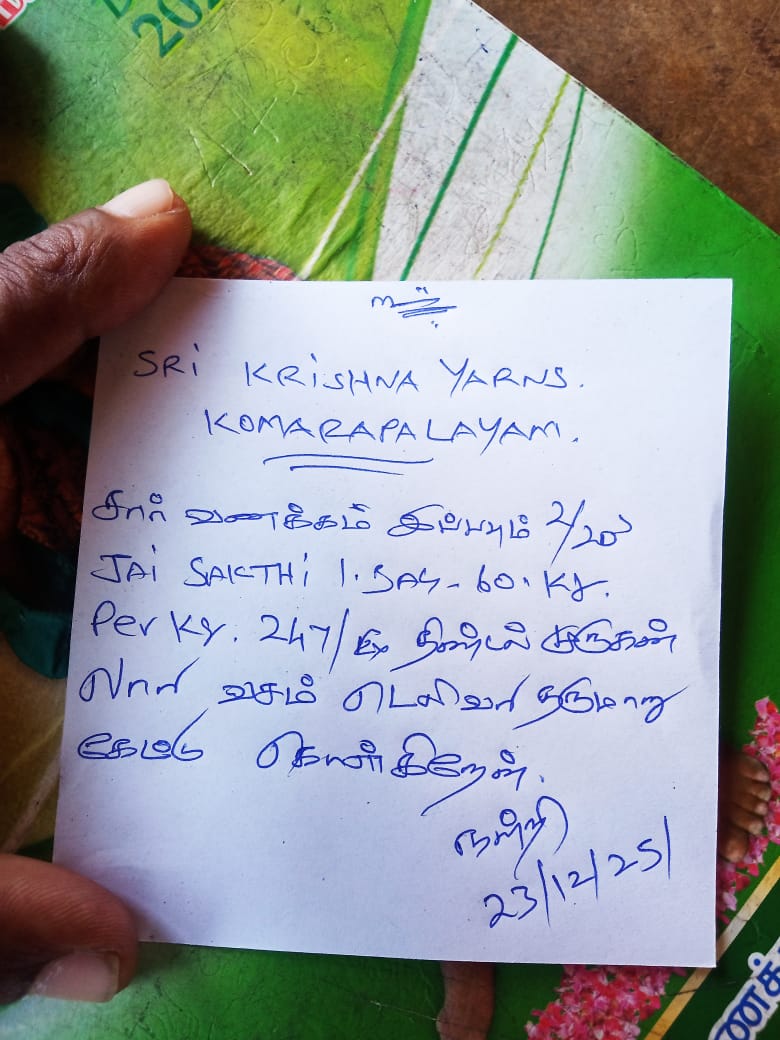 202
உ
SRI KRISHNA YARNS.
KOMARAPALAYAM.
சார் வணக்கம் இப்பவும் 2/20
JAI SAKTHI 1. BAG - 60. KG.
Per KG. 247/ரூ திண்டல் முருகன்
லாரி வசம் டெலிவரி தருமாறு
கேட்டு கொள்கிறேன்.
நன்றி
23/12/25/